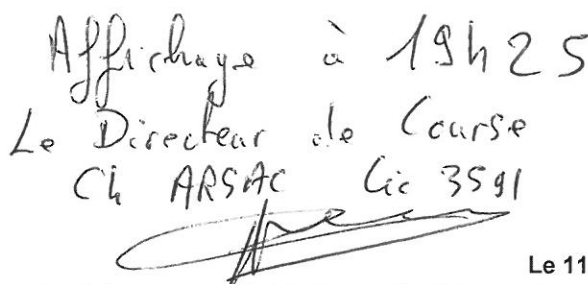 Affichage à 19h25
Le Directeur de Course
Ch ARSAC Lic 3591
Le 11